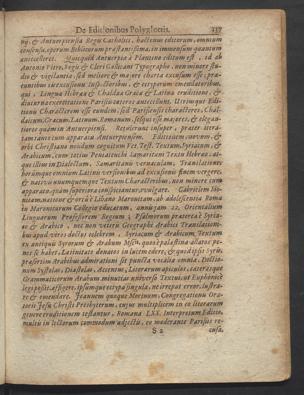 De Editionibus Polyglottis. 237
nu; & Antuerpiensia Regis Catholici, hactenus editorum, omnium
censusu, operum Biblicorum præstantissima, in immensum quantum
antecelleret. Quicquid Antuerpia à Plantino editum est, id ab
Antonio Vitré, Regis & Cleri Gallicani Typographo, non minore stu-
dio & vigilantia, sed meliore & majore charta excusum esse: præ-
euntibus in excusione Instructoribus, & errorum emendatoribus,
qui, Lingua Hebræa & Chaldæa Græca & Latina eruditione, &
diuturna exercitatione Parisiis cæteros antecellunt. Utriusque Edi-
tionis Characterum esse eundem, sed Parisiensis characteres, Chal-
daicum, Græcum, Latinum, Romanum, scilicet esse majores, & elegan-
tiores quàm in Antuerpiensi. Retulerunt insuper, præter litera-
tam
orbi Christiano nondum cognitum Vet. Test. Textum, Syriacum, &
Arabicum, cum totius Pentateuchi Samaritani Textu Hebræo, ali-
que illius in Dialectum Samaritanis vernaculam, Translatione:
horumque omnium Latinis versionibus ad excusionis finem vergere,
& nativis unumquemque Textum Characteribus, non minore cum
apparatu, quàm superiora conspiciantur, evulgare. Gabrielem Sio-
nitam, natione & ortu è Libano Maronitam, ab adolescentia Romæ
in Maronitarum Collegio educatum, annis jam 22. Orientalium
Linguarum Professorem Regium; Psalmorum præterea è Syria-
co & Arabico, nec non veteris Geographi Arabis Translationi-
bus apud viros doctos celebrem, Syriacum & Arabicum, Textum
ex antiquis Syrorum & Arabum MSS. quos è palæstina allatos pe-
nes se habet, Latinitate donatos in lucem edere, & quod ipsis Syris,
præsertim Arabibus admirationi sit puncta vocalia omnia, Dictio-
num Syllabas, Diastolas, Accentus, Literarum apices, cæterasque
Grammaticorum Arabum minutias universo Textui, ut Euphoniæ
legi posset, affigere, ipsumque è typa singula, ne irrepat error, lustra-
re & emendare. Joannem quoque Morinum, Congregationis Ora-
torii Jesu Christi Presbyterum, cujus multiplicem in re literarum
genere eruditionem testantur, Romana LXX. Interpretum Editio,
multis in lectorum commodum adjectis, eo moderante Parisiis re-
S 2 cusa,